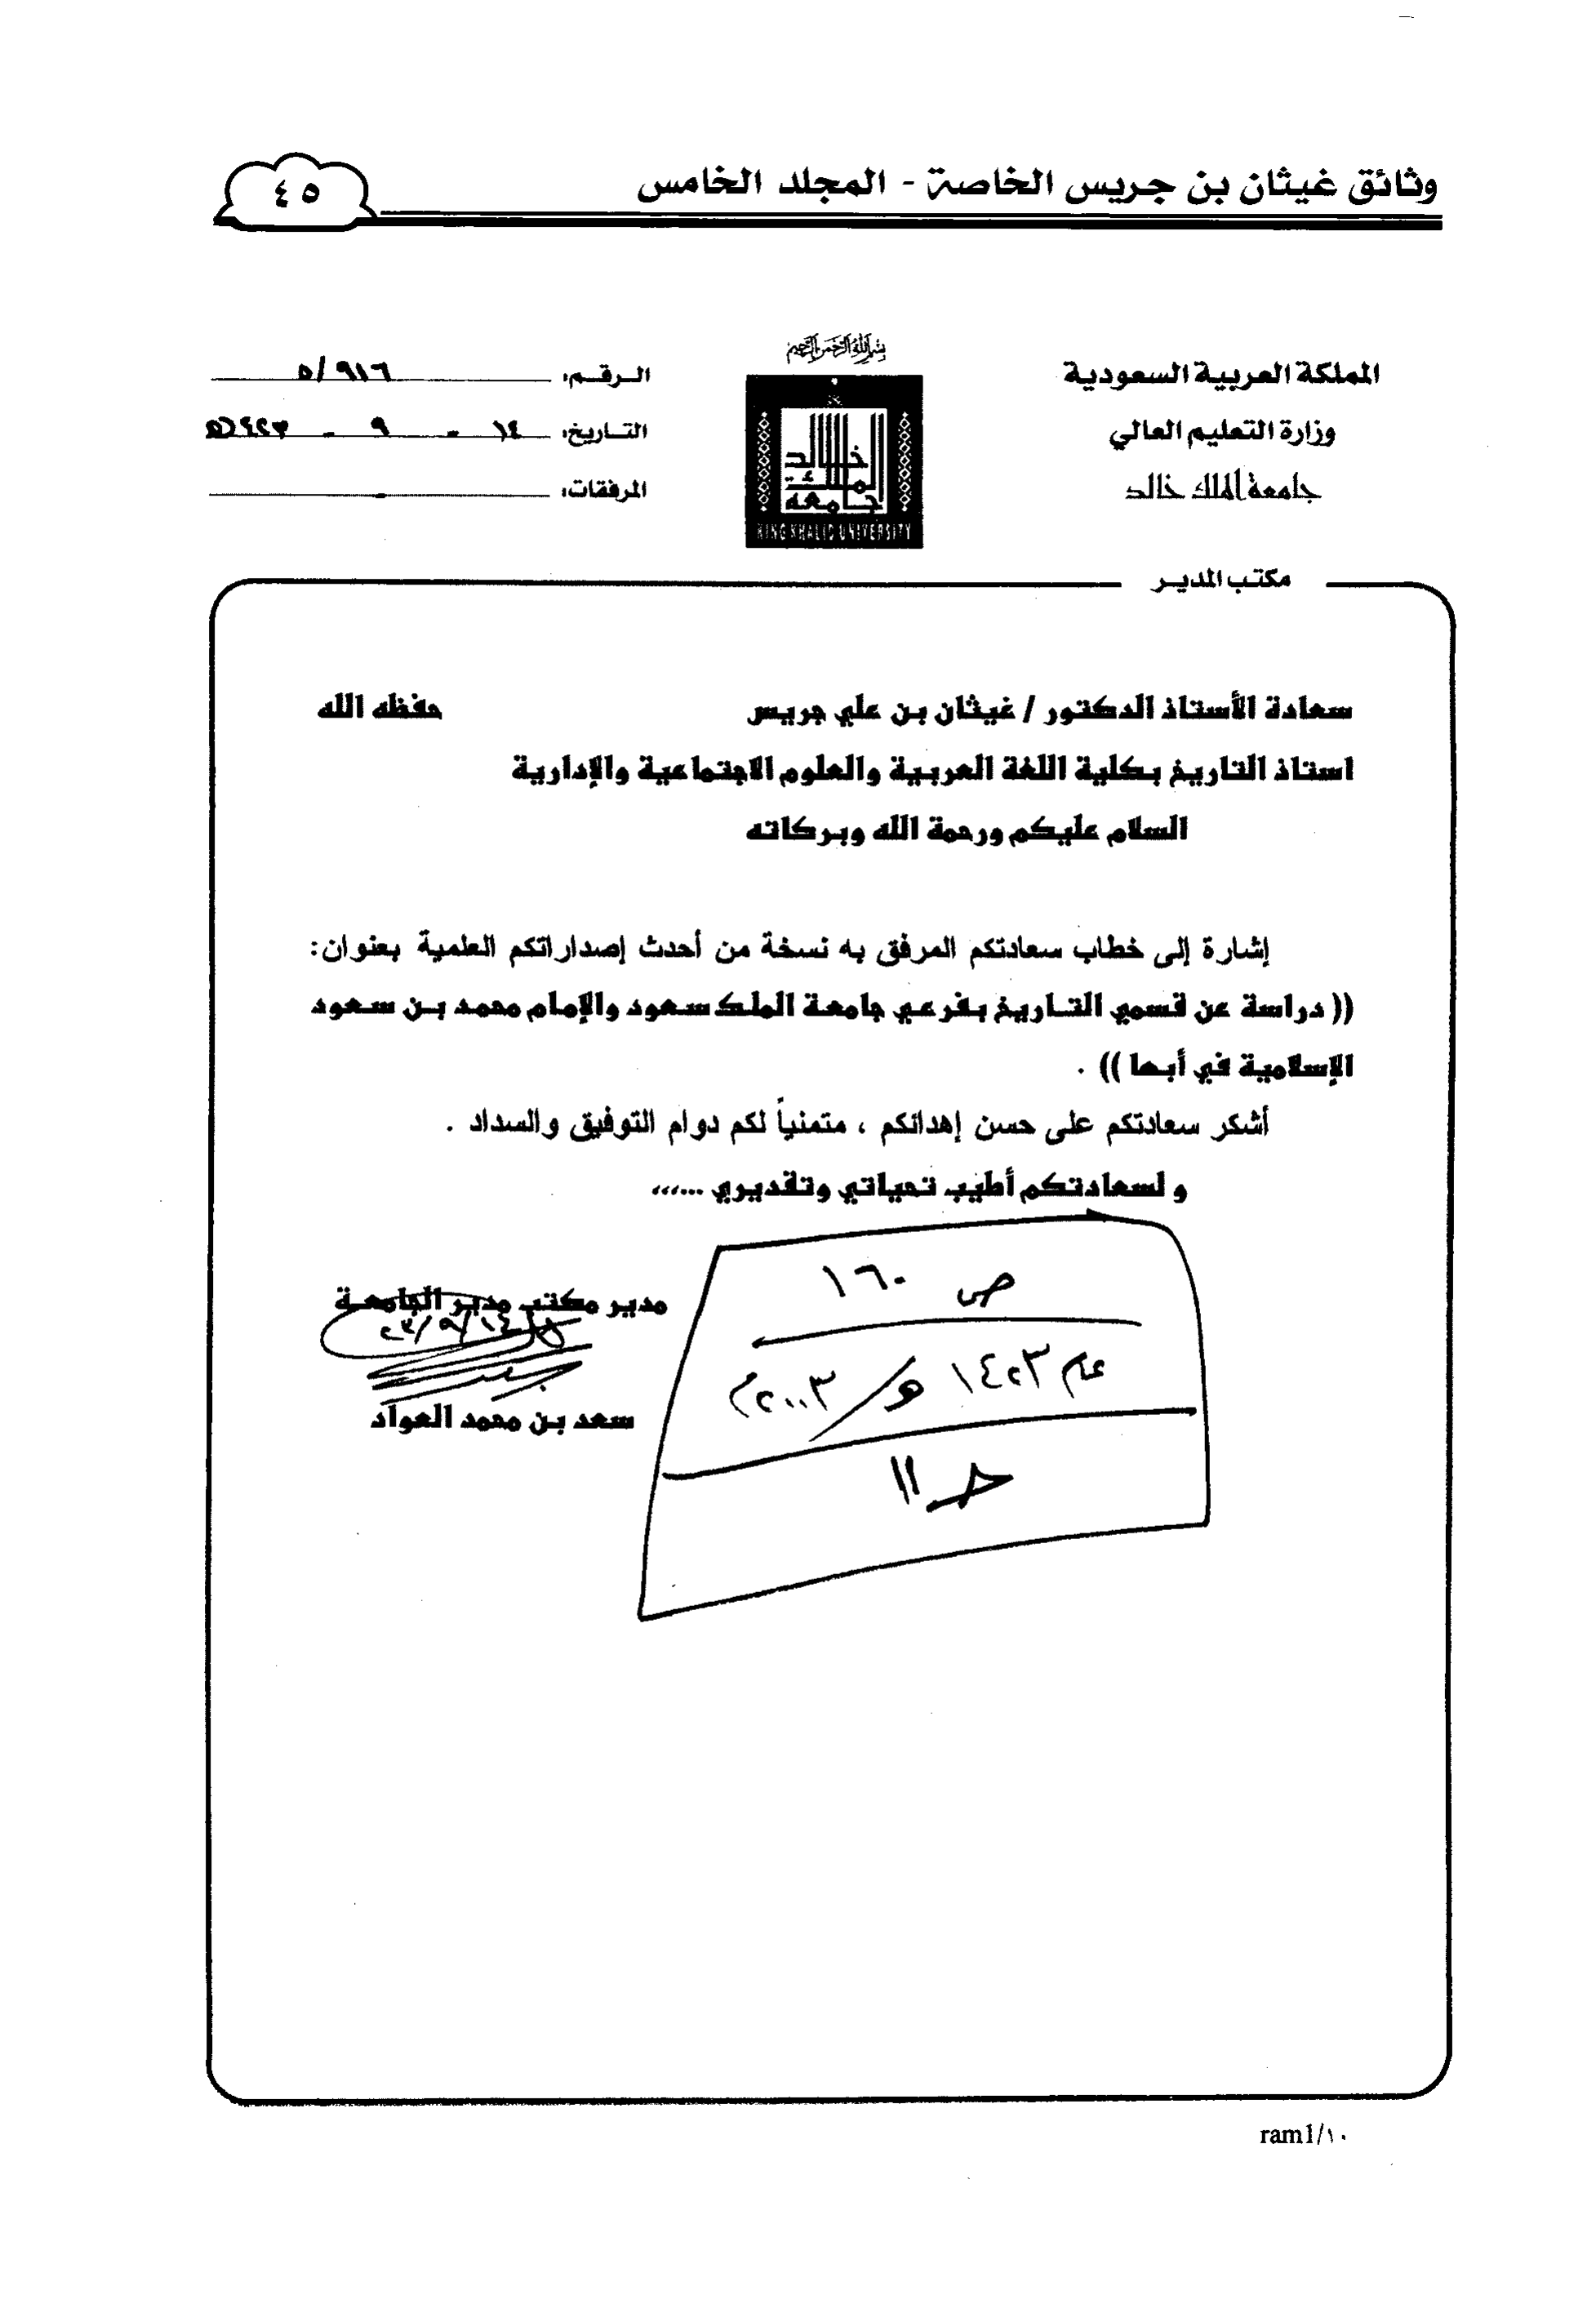 وثائق غيثان بن جريس الخاصة - المجلد الخامس
٤٥
المملكة العربية السعودية
وزارة التعليم العالي
جامعة الملك خالد
بسم الله الرحمن الرحيم
جامعة الملك خالد
KING KHALID UNIVERSITY
الرقم: ٥/٩١٦
التاريخ: ١٤ - ٩ - ١٤٢٣هـ
المرفقات: -
مكتب المدير
سعادة الأستاذ الدكتور / غيثان بن علي جريس حفظه الله
استاذ التاريخ بكلية اللغة العربية والعلوم الاجتماعية والإدارية
السلام عليكم ورحمة الله وبركاته
إشارة إلى خطاب سعادتكم المرفق به نسخة من أحدث إصداراتكم العلمية بعنوان:
(( دراسة عن قسمي التاريخ بفرعي جامعة الملك سعود والإمام محمد بن سعود
الإسلامية في أبها )) .
أشكر سعادتكم على حسن إهدائكم ، متمنياً لكم دوام التوفيق والسداد .
و لسعادتكم أطيب تحياتي وتقديري ...،،،
مدير مكتب مدير الجامعة
٢٣/٩/١٤
سعد بن محمد العواد
ص ١٦٠
عام ١٤٢٣هـ / ٢٠٠٣م
حـ ١١
ram1/١٠